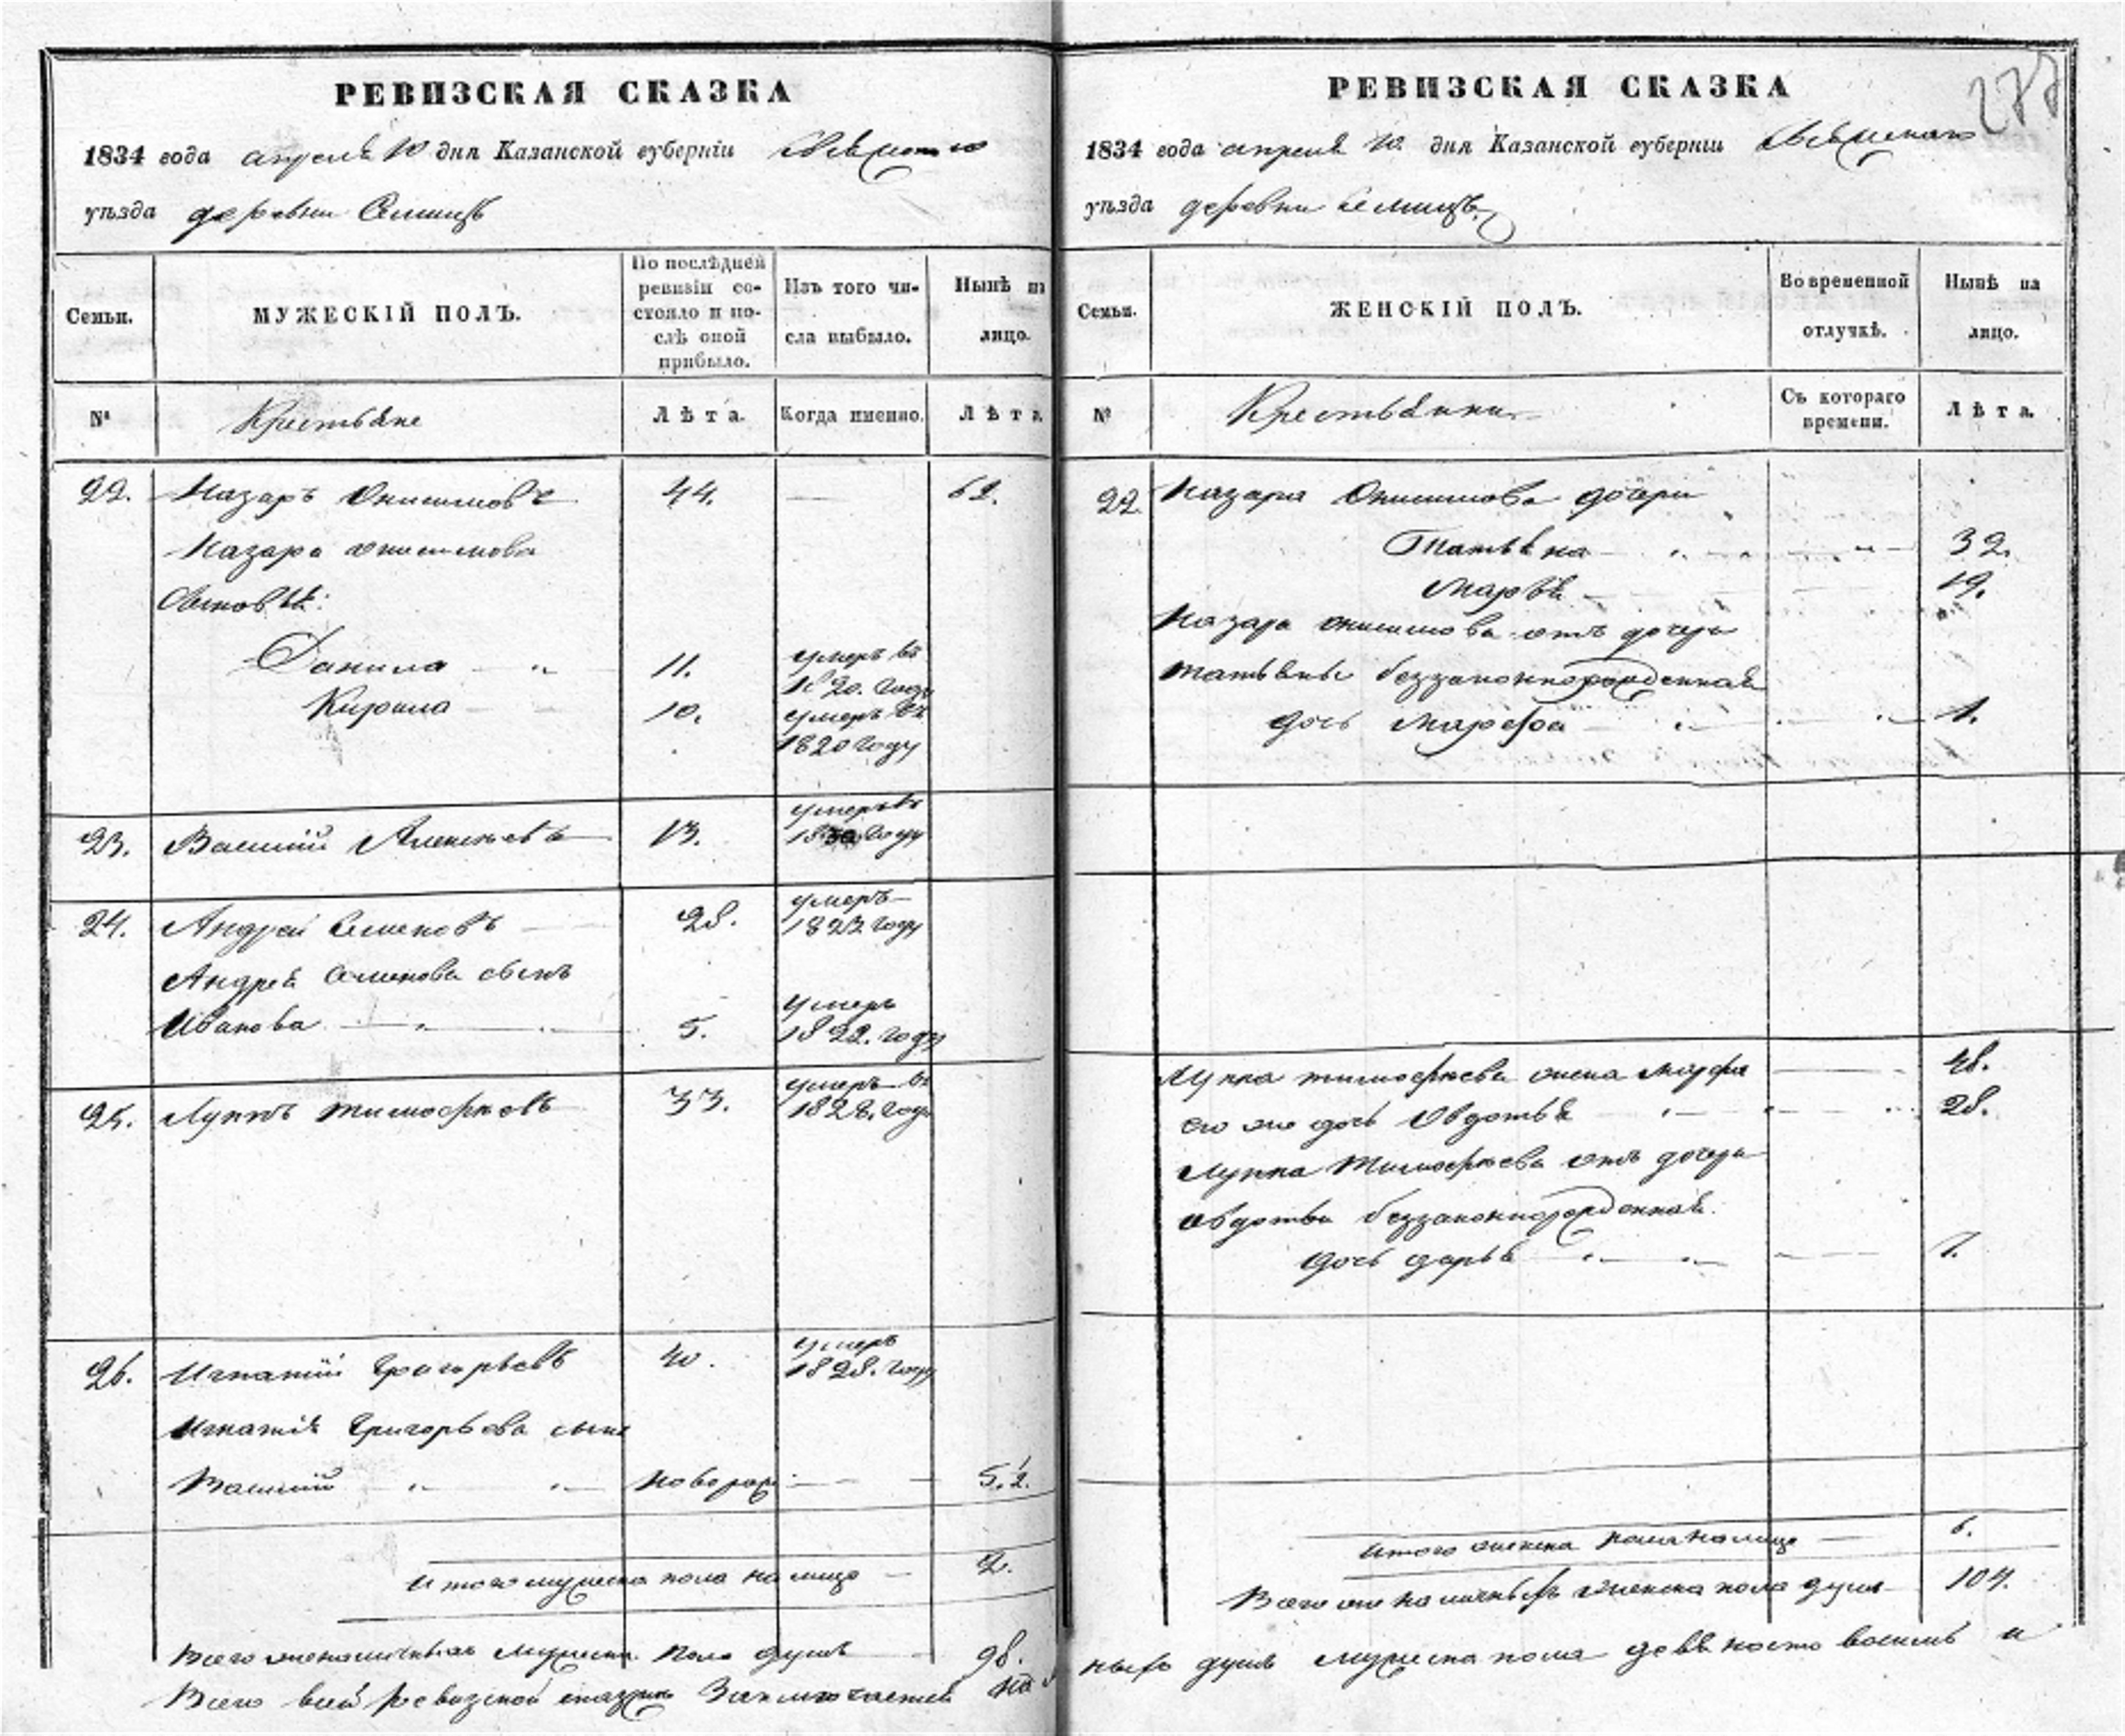 РЕВИЗСКАЯ СКАЗКА
1834 года апреля 10 дня Казанской губернии
уѣзда деревни
Семьи.
МУЖЕСКІЙ ПОЛЪ.
По послѣдней
ревизіи со-
стояло и по-
слѣ оной
прибыло.
Изъ того чи-
сла выбыло.
Нынѣ на
лицо.
№
Крестьяне
Лѣта.
Когда именно.
Лѣта.
22. Назаръ Онисимовъ 44. — 62.
Назара Онисимова
сыновья:
Данила 11. умеръ въ
1820. году
Кирила 10. умеръ въ
1820 году
23. Василий Алексѣевъ 13. умеръ въ
году
24. Андрей Семеновъ 28. умеръ
1823. году
Андрея Семенова сынъ
Иванова 5. умеръ
1822. году
25. Луппъ Тимофѣевъ 33. умеръ въ
1828. году
26. Игнатій Григорьевъ 40. умеръ
1828. году
Игнатія Григорьева сынъ
Василий новорож:
Итого мужеска пола на лицо — 2.
Всего же наличныхъ мужеска пола душъ 98.
Всего въ сей ревизской сказке Заключается на
РЕВИЗСКАЯ СКАЗКА
277
1834 года апреля 10 дня Казанской губернии
уѣзда деревни
Семьи.
ЖЕНСКІЙ ПОЛЪ.
Во временной
отлучкѣ.
Нынѣ на
лицо.
№
Крестьянки
Съ котораго
времени.
Лѣта.
22. Назара Онисимова дочери
Татьяна 32.
Марья 19.
Назара Онисимова отъ дочери
Татьяны беззаконнорожденная
дочь Марфа 1.
Луппа Тимофѣева жена Марфа 48.
его же дочь Овдотья 28.
Луппа Тимофѣева отъ дочери
Овдотьи беззаконнорожденная
дочь Дарья 7.
Итого женска пола на лицо 6.
Всего же наличныхъ женска пола душъ 104.
ныхъ душъ мужеска пола девяносто восемь и